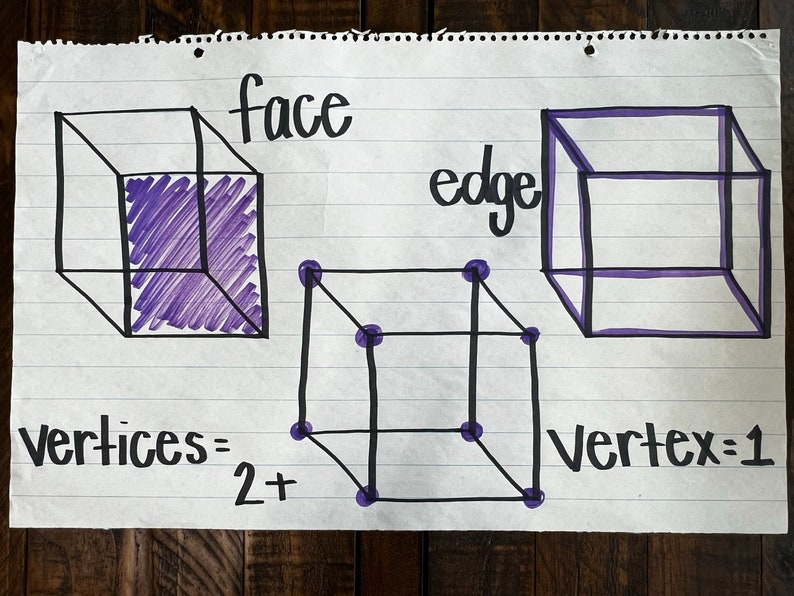 face
edge
vertices=
2+
vertex=1